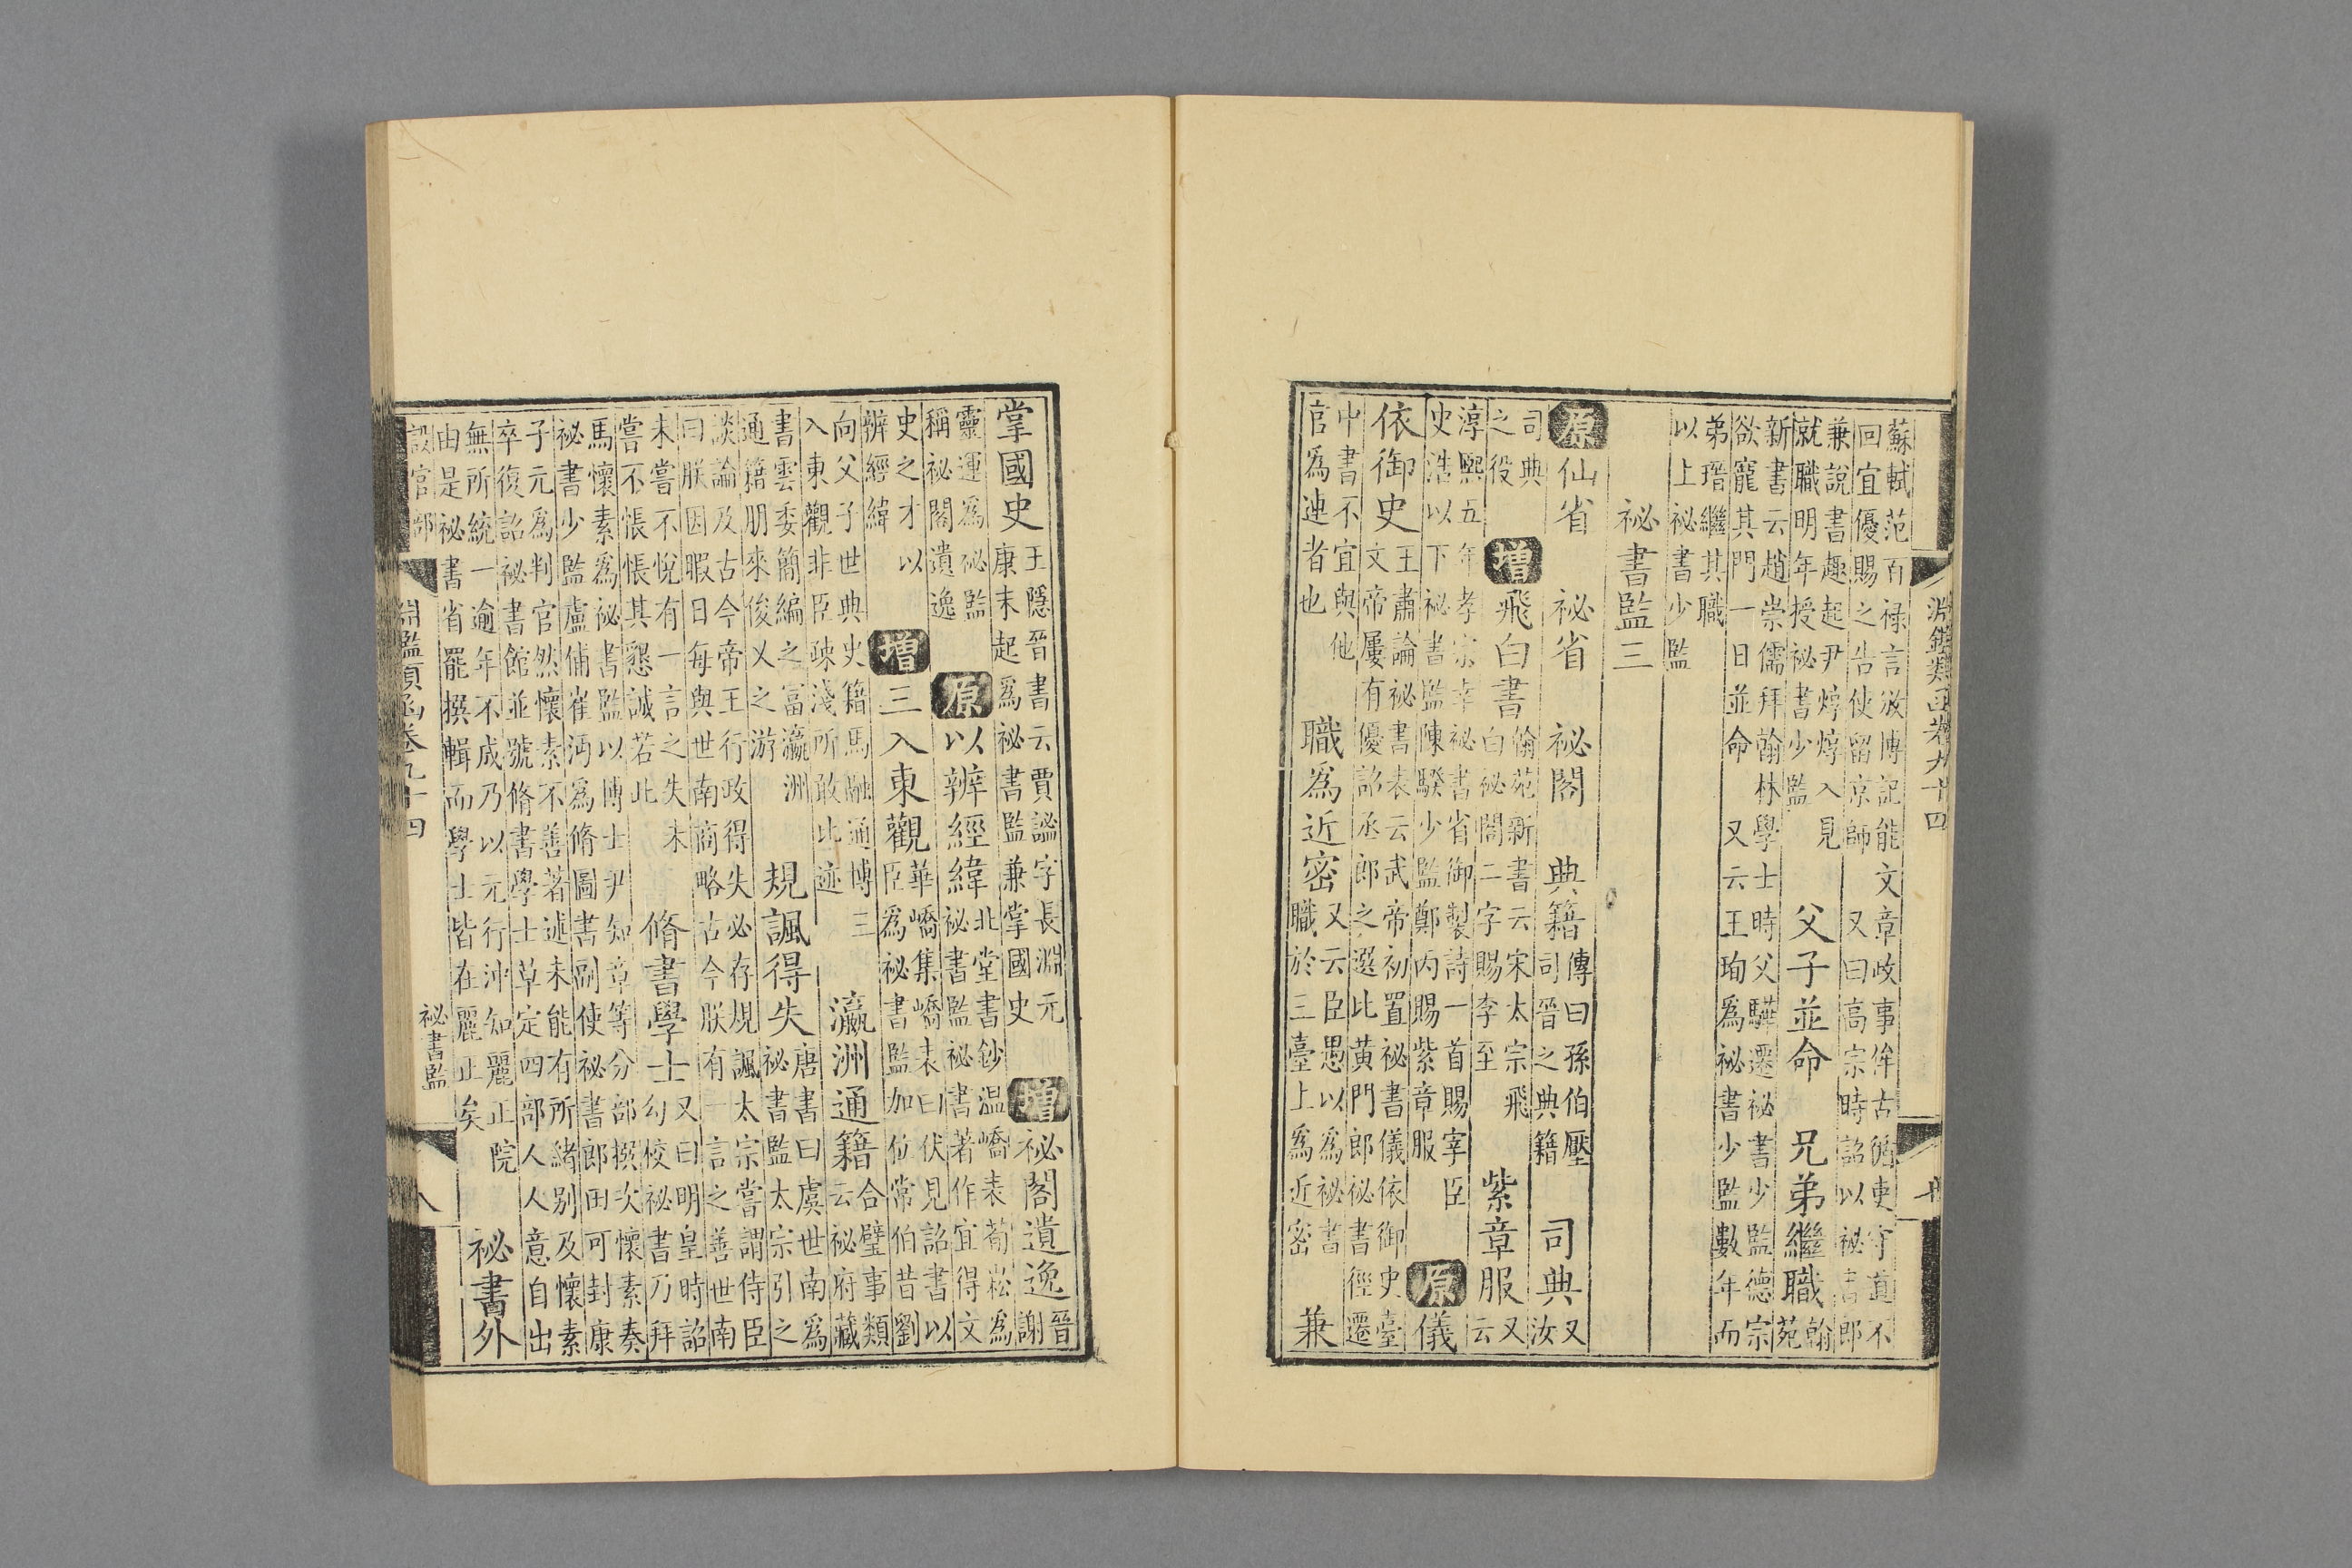 蘇軾范百禄言攽博記能文章政事侔古循吏守道不
回宜優賜之告使留京師 又曰高宗時詔以祕書郎
兼說書趣起尹焞焞入見
就職明年授祕書少監
父子並命 兄弟繼職
翰
苑
新書云趙崇儒拜翰林學士時父驊遷祕書少監德宗
欲寵其門一日並命 又云王珣為祕書少監數年而
弟瑨繼其職
以上祕書少監
祕書監三
原仙省 祕省 祕閣 典籍
傳曰孫伯黶
司晉之典籍
司典
又
汝
司典
之役
增飛白書
翰苑新書云宋太宗飛
白祕閣二字賜李至
紫章服
又
云
淳熙五年孝宗幸祕書省御製詩一首賜宰臣
史浩以下祕書監陳騤少監鄭丙賜紫章服
原儀
依御史
王肅論祕書表云武帝初置祕書儀依御史臺
文帝屢有優詔丞郎之選比黃門郎祕書徑遷
中書不宜與他
官為連者也
職為近密
又云臣愚以為祕書
職於三臺上為近密
兼
淵鑑類函卷九十四
掌國史
王隱晉書云賈謐字長淵元
康末起為祕書監兼掌國史
增祕閣遺逸
晉
謝
靈運為祕監
稱祕閣遺逸
原以辨經緯
北堂書鈔温嶠表荀崧為
祕書監祕書著作宜得文
史之才以
辨經緯
增三入東觀
華嶠集嶠表曰伏見詔書以
臣為祕書監加位常伯昔劉
向父子世典史籍馬融通博三
入東觀非臣疎淺所敢比迹
瀛洲通籍
合璧事類
云祕府藏
書雲委簡編之富瀛洲
通籍朋來俊乂之游
規諷得失
唐書曰虞世南為
祕書監太宗引之
談論及古今帝王行政得失必存規諷太宗嘗謂侍臣
曰朕因暇日每與世南商略古今朕有一言之善世南
未嘗不悅有一言之失未
嘗不悵悵其懇誠若此
脩書學士
又曰明皇時詔
勾校祕書乃拜
馬懷素為祕書監以博士尹知章等分部撰次懷素奏
祕書少監盧俌崔沔為脩圖書副使祕書郎田可封康
子元為判官然懷素不善著述未能有所緒别及懷素
卒復詔祕書館並號脩書學士草定四部人人意自出
無所統一逾年不成乃以元行沖知麗正院
由是祕書省罷撰輯而學士皆在麗正矣
祕書外
設官部
淵鑑類函卷九十四
祕書監
八